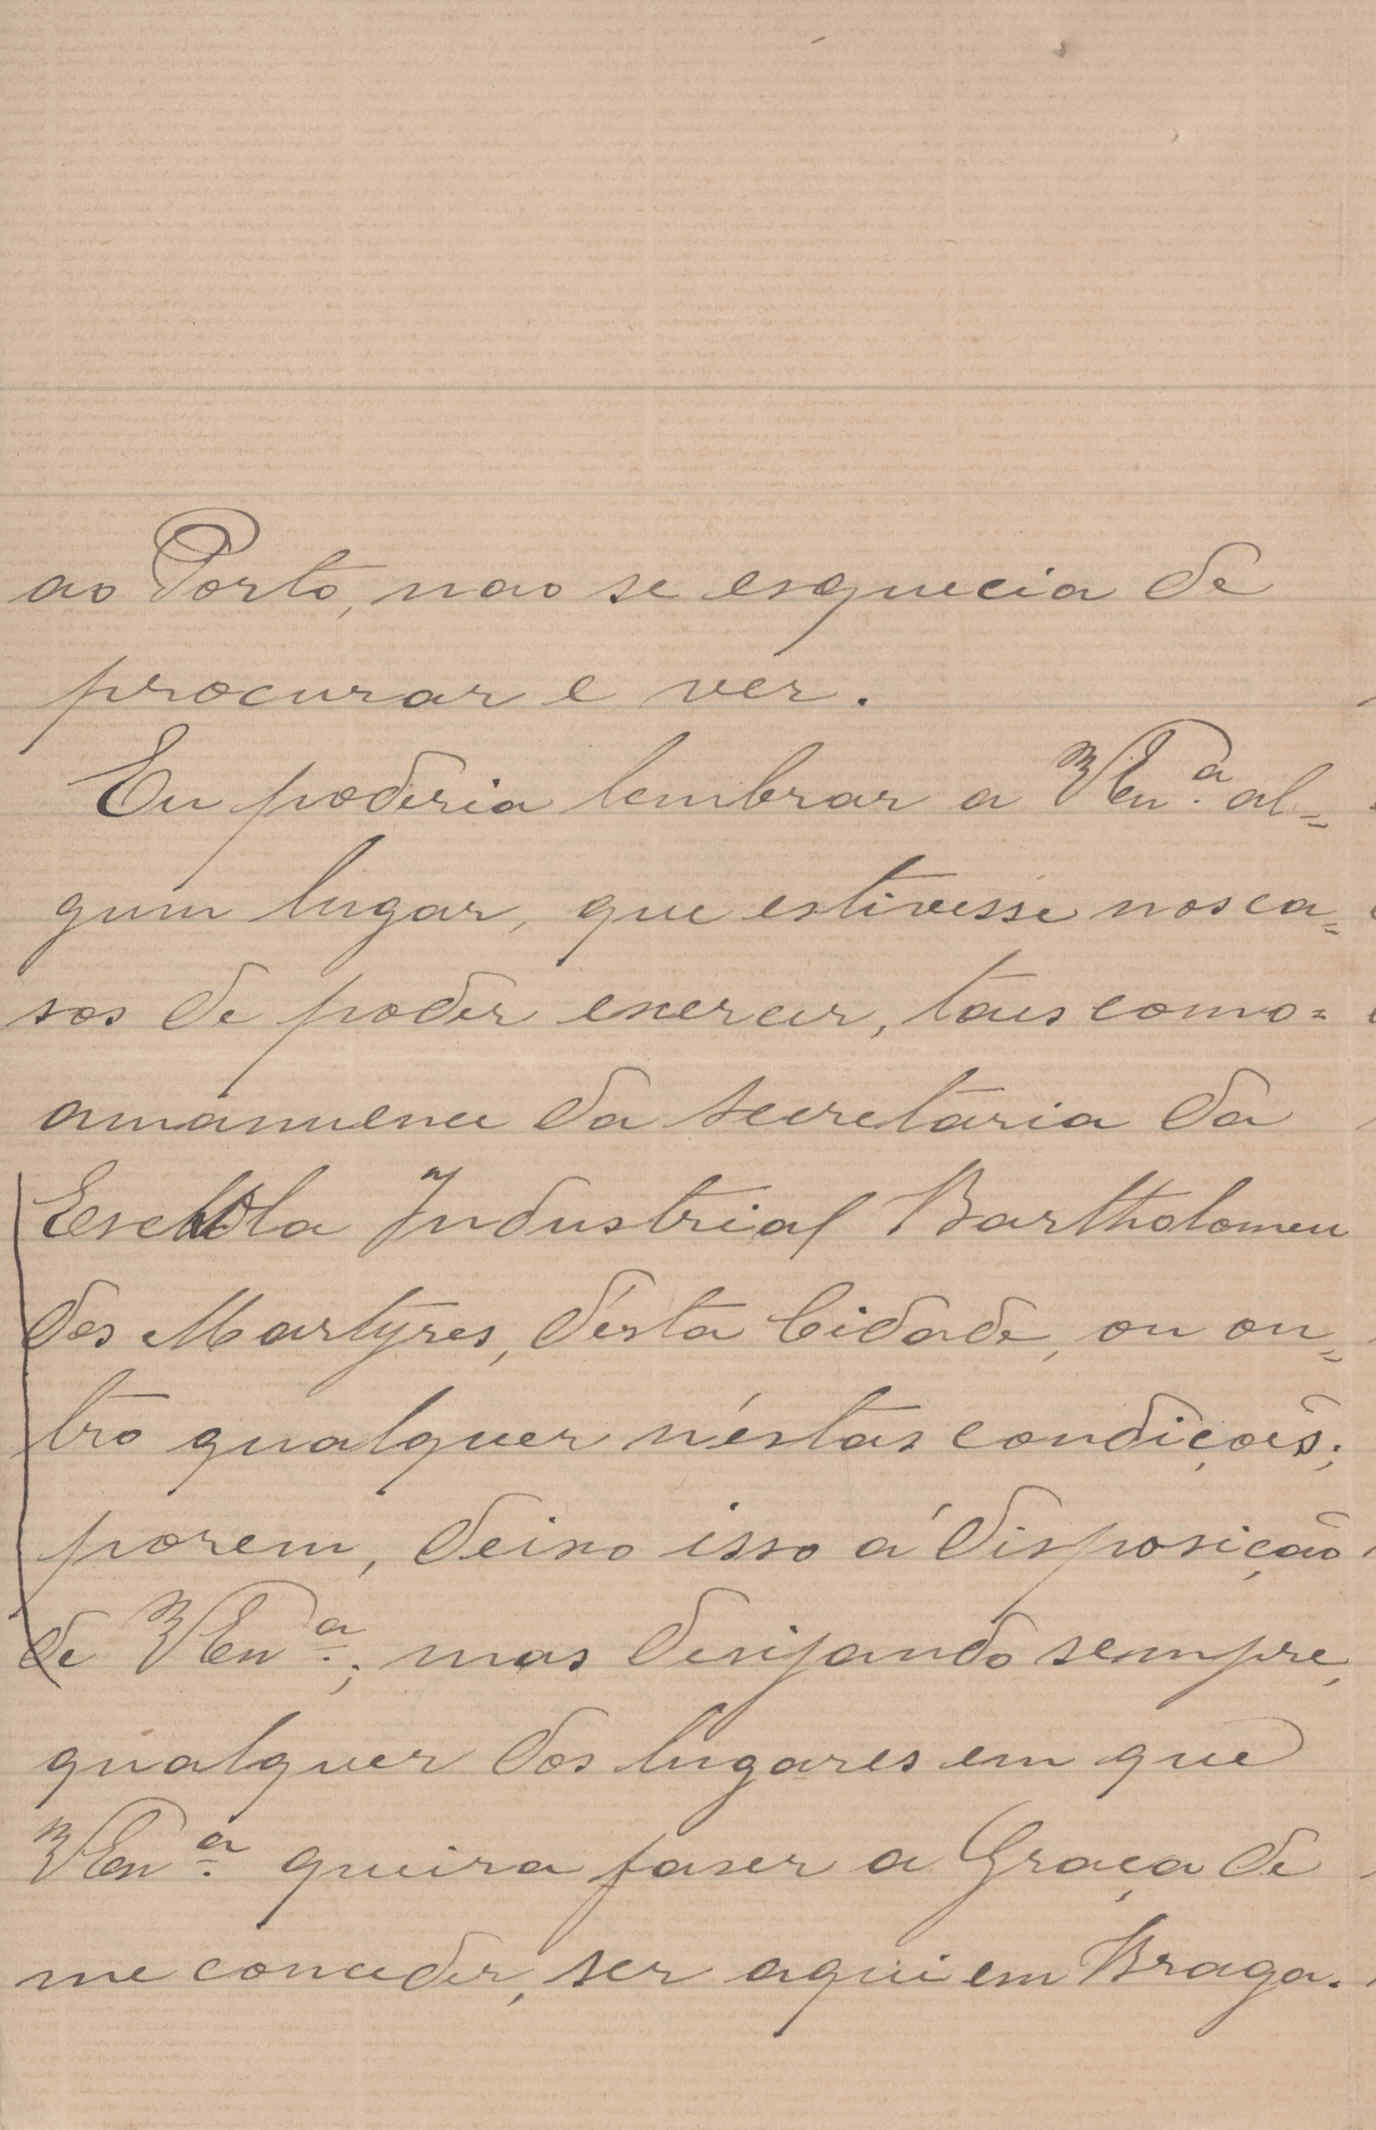 ao Porto, nao se esquecia de
procurar e ver.
Eu poderia lembrar a VExª al=
gum lugar, que estivesse nos ca=
sos de poder exercer, taes como=
amanuence da secretaria da
Eschola Industrial Bartholomeu
dos Martyres, d'esta Cidade, ou ou=
tro qualquer n'éstas condiçoẽs;
porem, deixo isso a' disposição
de VExª; mas desejando sempre,
qualquer dos lugares em que
VExª queira faser a Graça de
me conceder, ser aqui em Braga.